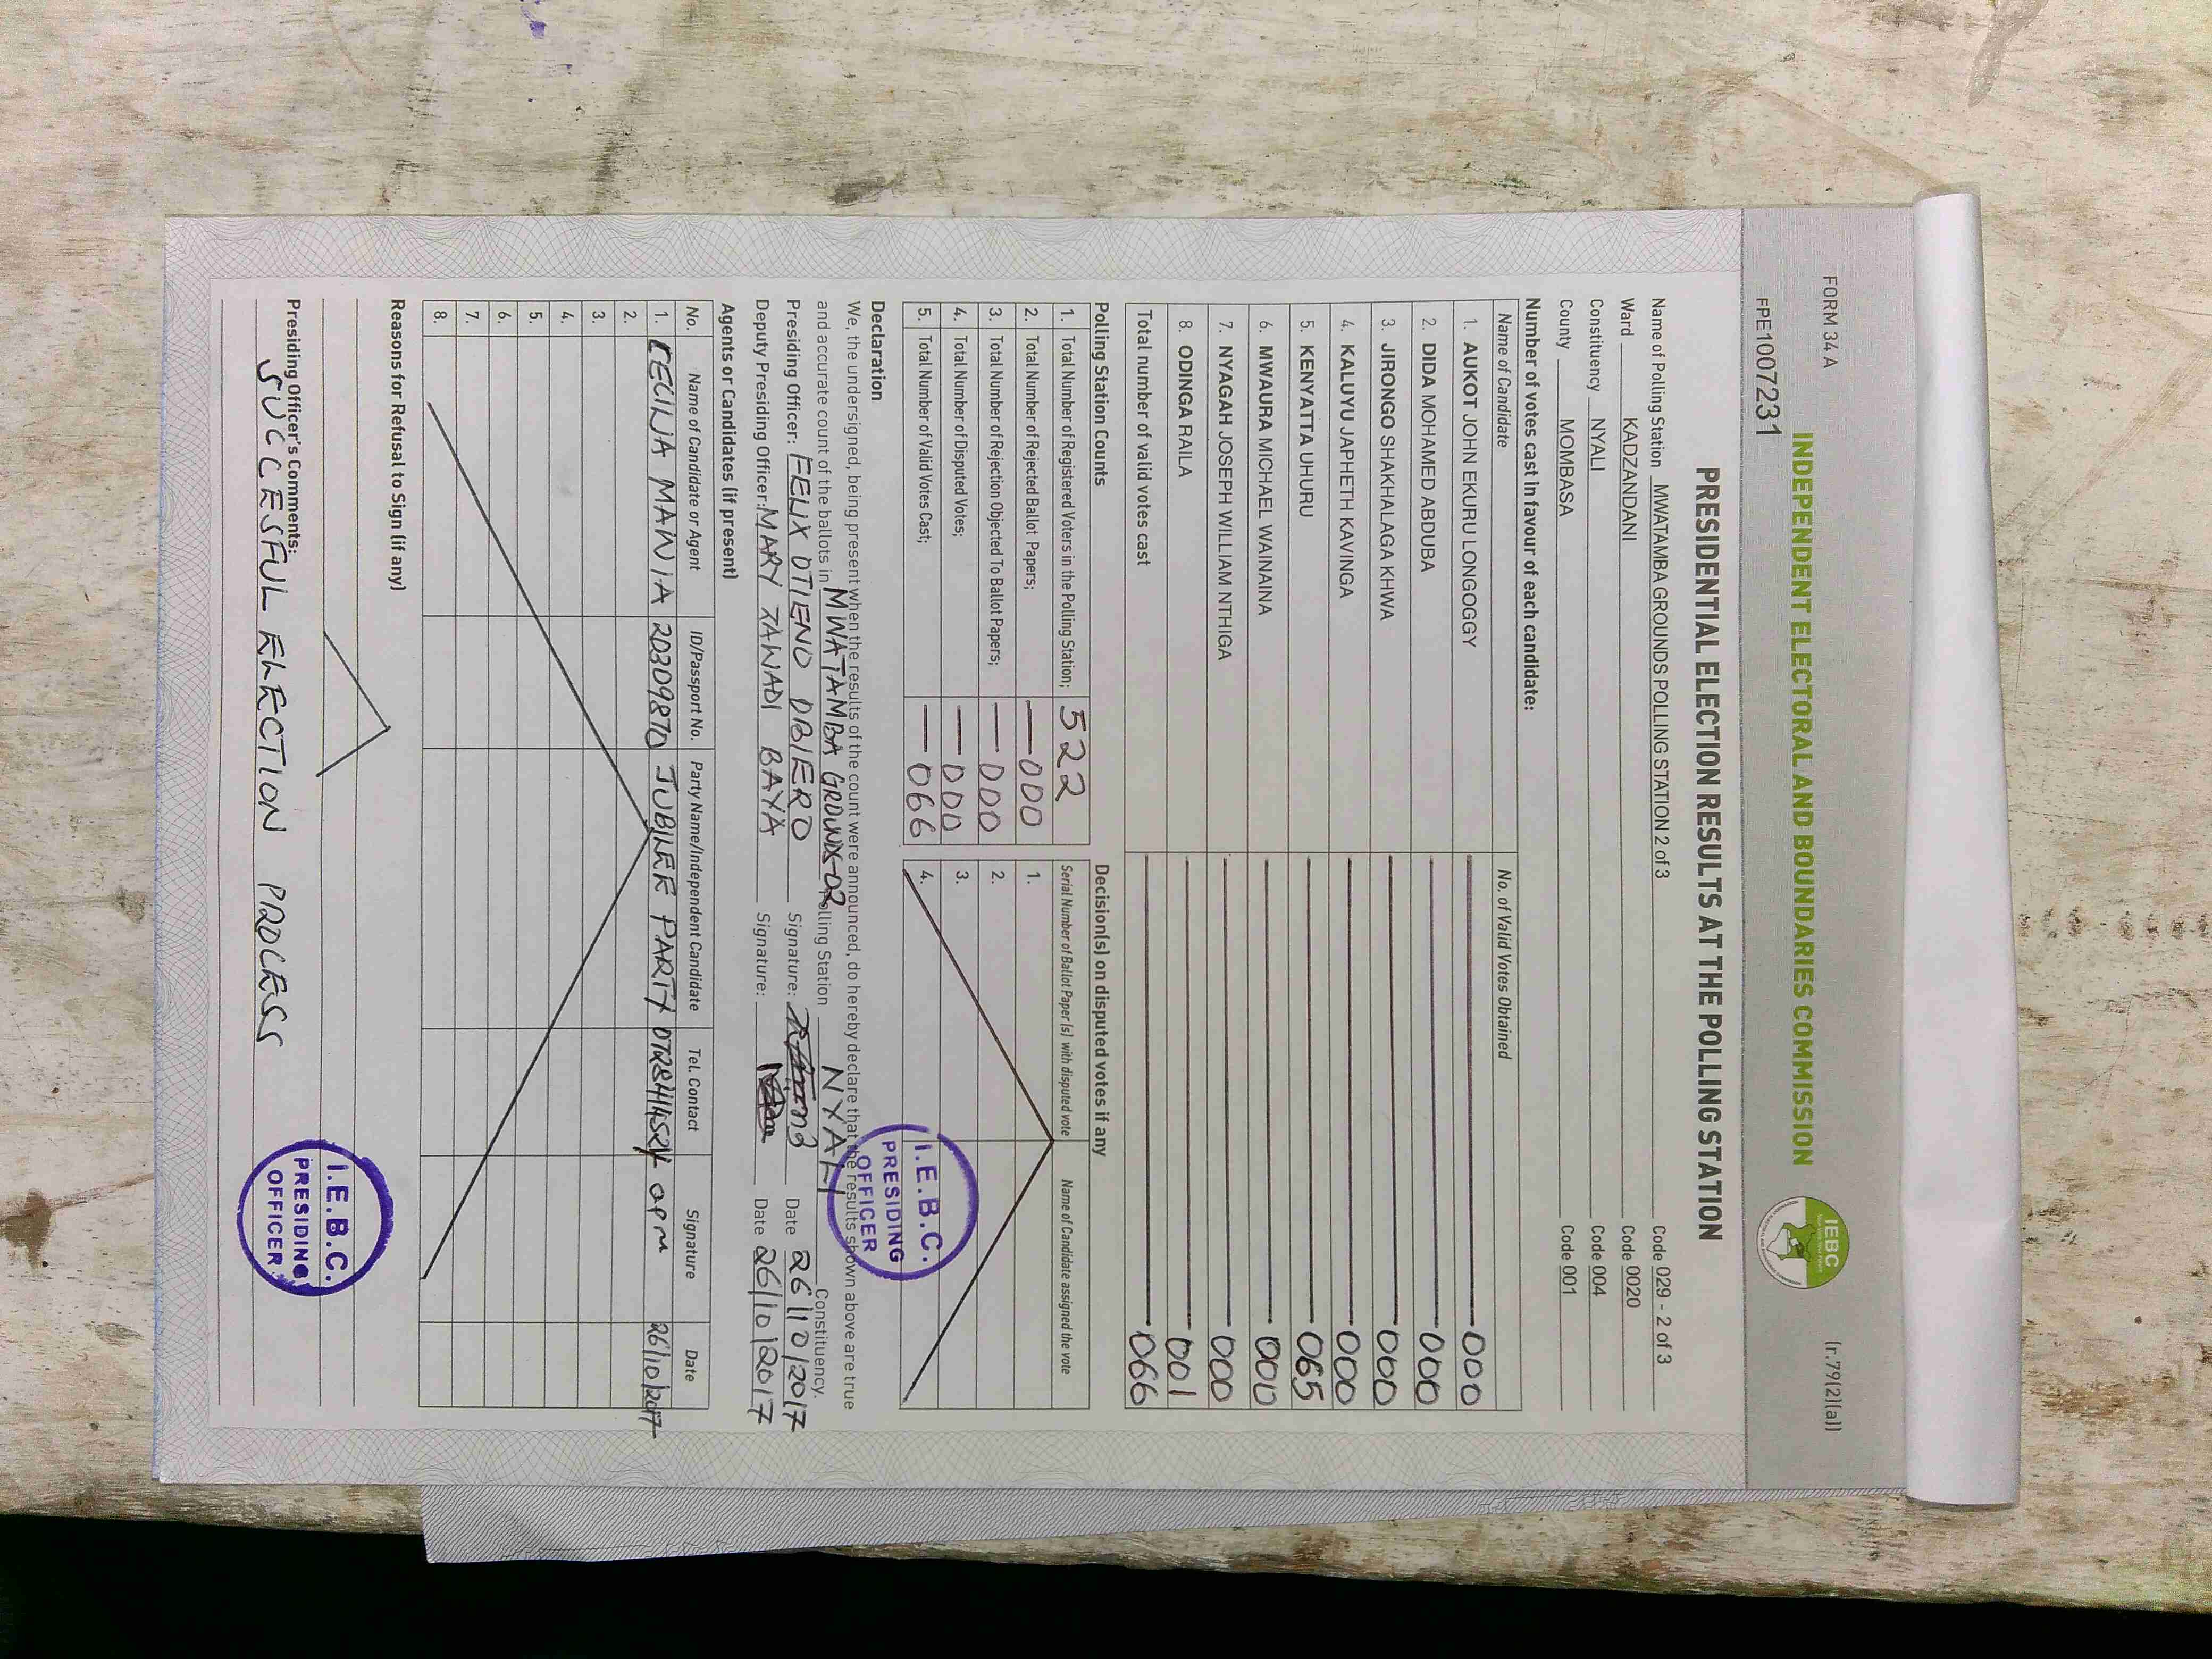 FORM 34 A
(r.79(2)(a))
INDEPENDENT ELECTORAL AND BOUNDARIES COMMISSION
IEBC
FPE1007231
PRESIDENTIAL ELECTION RESULTS AT THE POLLING STATION
Name of Polling Station MWATAMBA GROUNDS POLLING STATION 2 of 3 Code 029 - 2 of 3
Ward KADZANDANI Code 0020
Constituency NYALI Code 004
County MOMBASA Code 001
Number of votes cast in favour of each candidate:
Name of Candidate No. of Valid Votes Obtained
1. AUKOT JOHN EKURU LONGOGGY 000
2. DIDA MOHAMED ABDUBA 000
3. JIRONGO SHAKHALAGA KHWA 000
4. KALUYU JAPHETH KAVINGA 000
5. KENYATTA UHURU 065
6. MWAURA MICHAEL WAINAINA 000
7. NYAGAH JOSEPH WILLIAM NTHIGA 000
8. ODINGA RAILA 001
Total number of valid votes cast 066
Polling Station Counts
1. Total Number of Registered Voters in the Polling Station; 522
2. Total Number of Rejected Ballot Papers; 000
3. Total Number of Rejection Objected To Ballot Papers; 000
4. Total Number of Disputed Votes; 000
5. Total Number of Valid Votes Cast; 066
Decision(s) on disputed votes if any
Serial Number of Ballot Paper (s) with disputed vote Name of Candidate assigned the vote
1.
2.
3.
4.
I.E.B.C. PRESIDING OFFICER
Declaration
We, the undersigned, being present when the results of the count were announced, do hereby declare that the results shown above are true
and accurate count of the ballots in MWATAMBA GROUNDS-02 Polling Station NYALI Constituency.
Presiding Officer: FELIX OTIENO OBIERO Signature: Date 26/10/2017
Deputy Presiding Officer: MARY ZAWADI BAYA Signature: Date 26/10/2017
Agents or Candidates (if present)
No. Name of Candidate or Agent ID/Passport No. Party Name/Independent Candidate Tel. Contact Signature Date
1. CECILIA MAWIA 20309870 JUBILEE PARTY 26/10/2017
2.
3.
4.
5.
6.
7.
8.
Reasons for Refusal to Sign (if any)
Presiding Officer's Comments:
SUCCESFUL ELECTION PROCESS
I.E.B.C. PRESIDING OFFICER